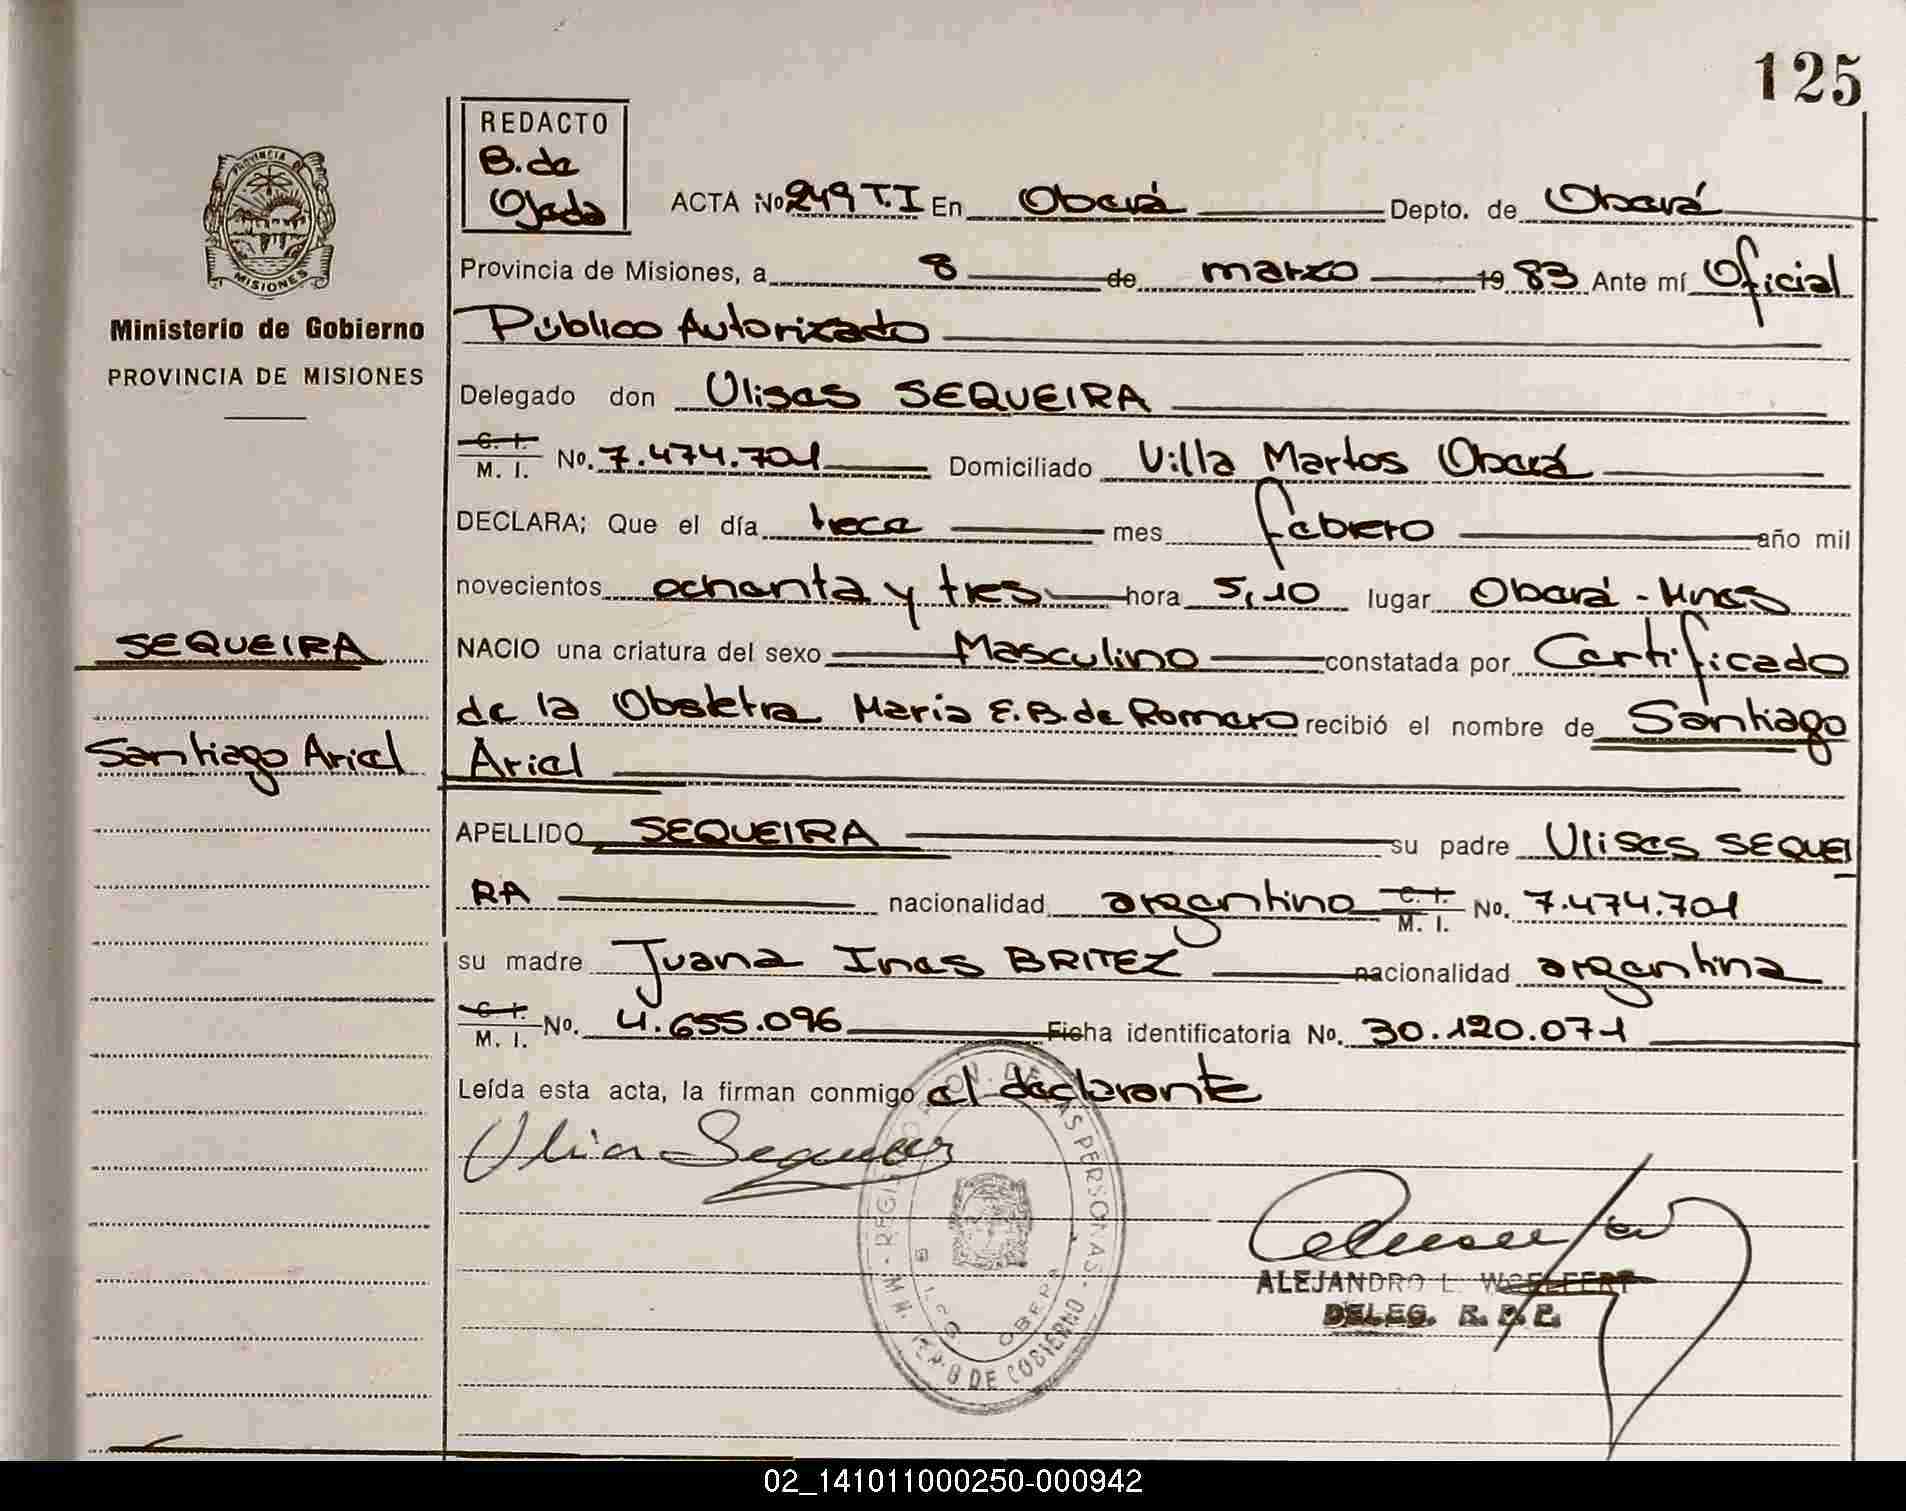 125
REDACTO
B. de
Ojeda
ACTA Nº 249 T.I En Oberá Depto. de Oberá
Provincia de Misiones, a 8 de marzo 19 83 Ante mí Oficial
Público Autorizado
Delegado don Ulises SEQUEIRA
C. I.
M. I. Nº. 7.474.701 Domiciliado Villa Martos Oberá
DECLARA; Que el día trece mes febrero año mil
novecientos ochenta y tres hora 5,10 lugar Oberá - Mnes
NACIO una criatura del sexo Masculino constatada por Certificado
de la Obstetra Maria E. B. de Romero recibió el nombre de Santiago
Ariel
APELLIDO SEQUEIRA su padre Ulises SEQUEI
RA nacionalidad argentino C. I. M. I. Nº. 7.474.701
su madre Juana Ines BRITEZ nacionalidad argentina
C. I.
M. I. Nº. 4.655.096 Ficha identificatoria Nº. 30.120.071
Leída esta acta, la firman conmigo el declarante
Ulises Sequeira
REGISTRO DE LAS PERSONAS
OBERA
DE GOBIERNO
ALEJANDRO L. WOELFERT
DELEG. R. P. P.
PROVINCIA DE
MISIONES
Ministerio de Gobierno
PROVINCIA DE MISIONES
SEQUEIRA
Santiago Ariel
02_141011000250-000942